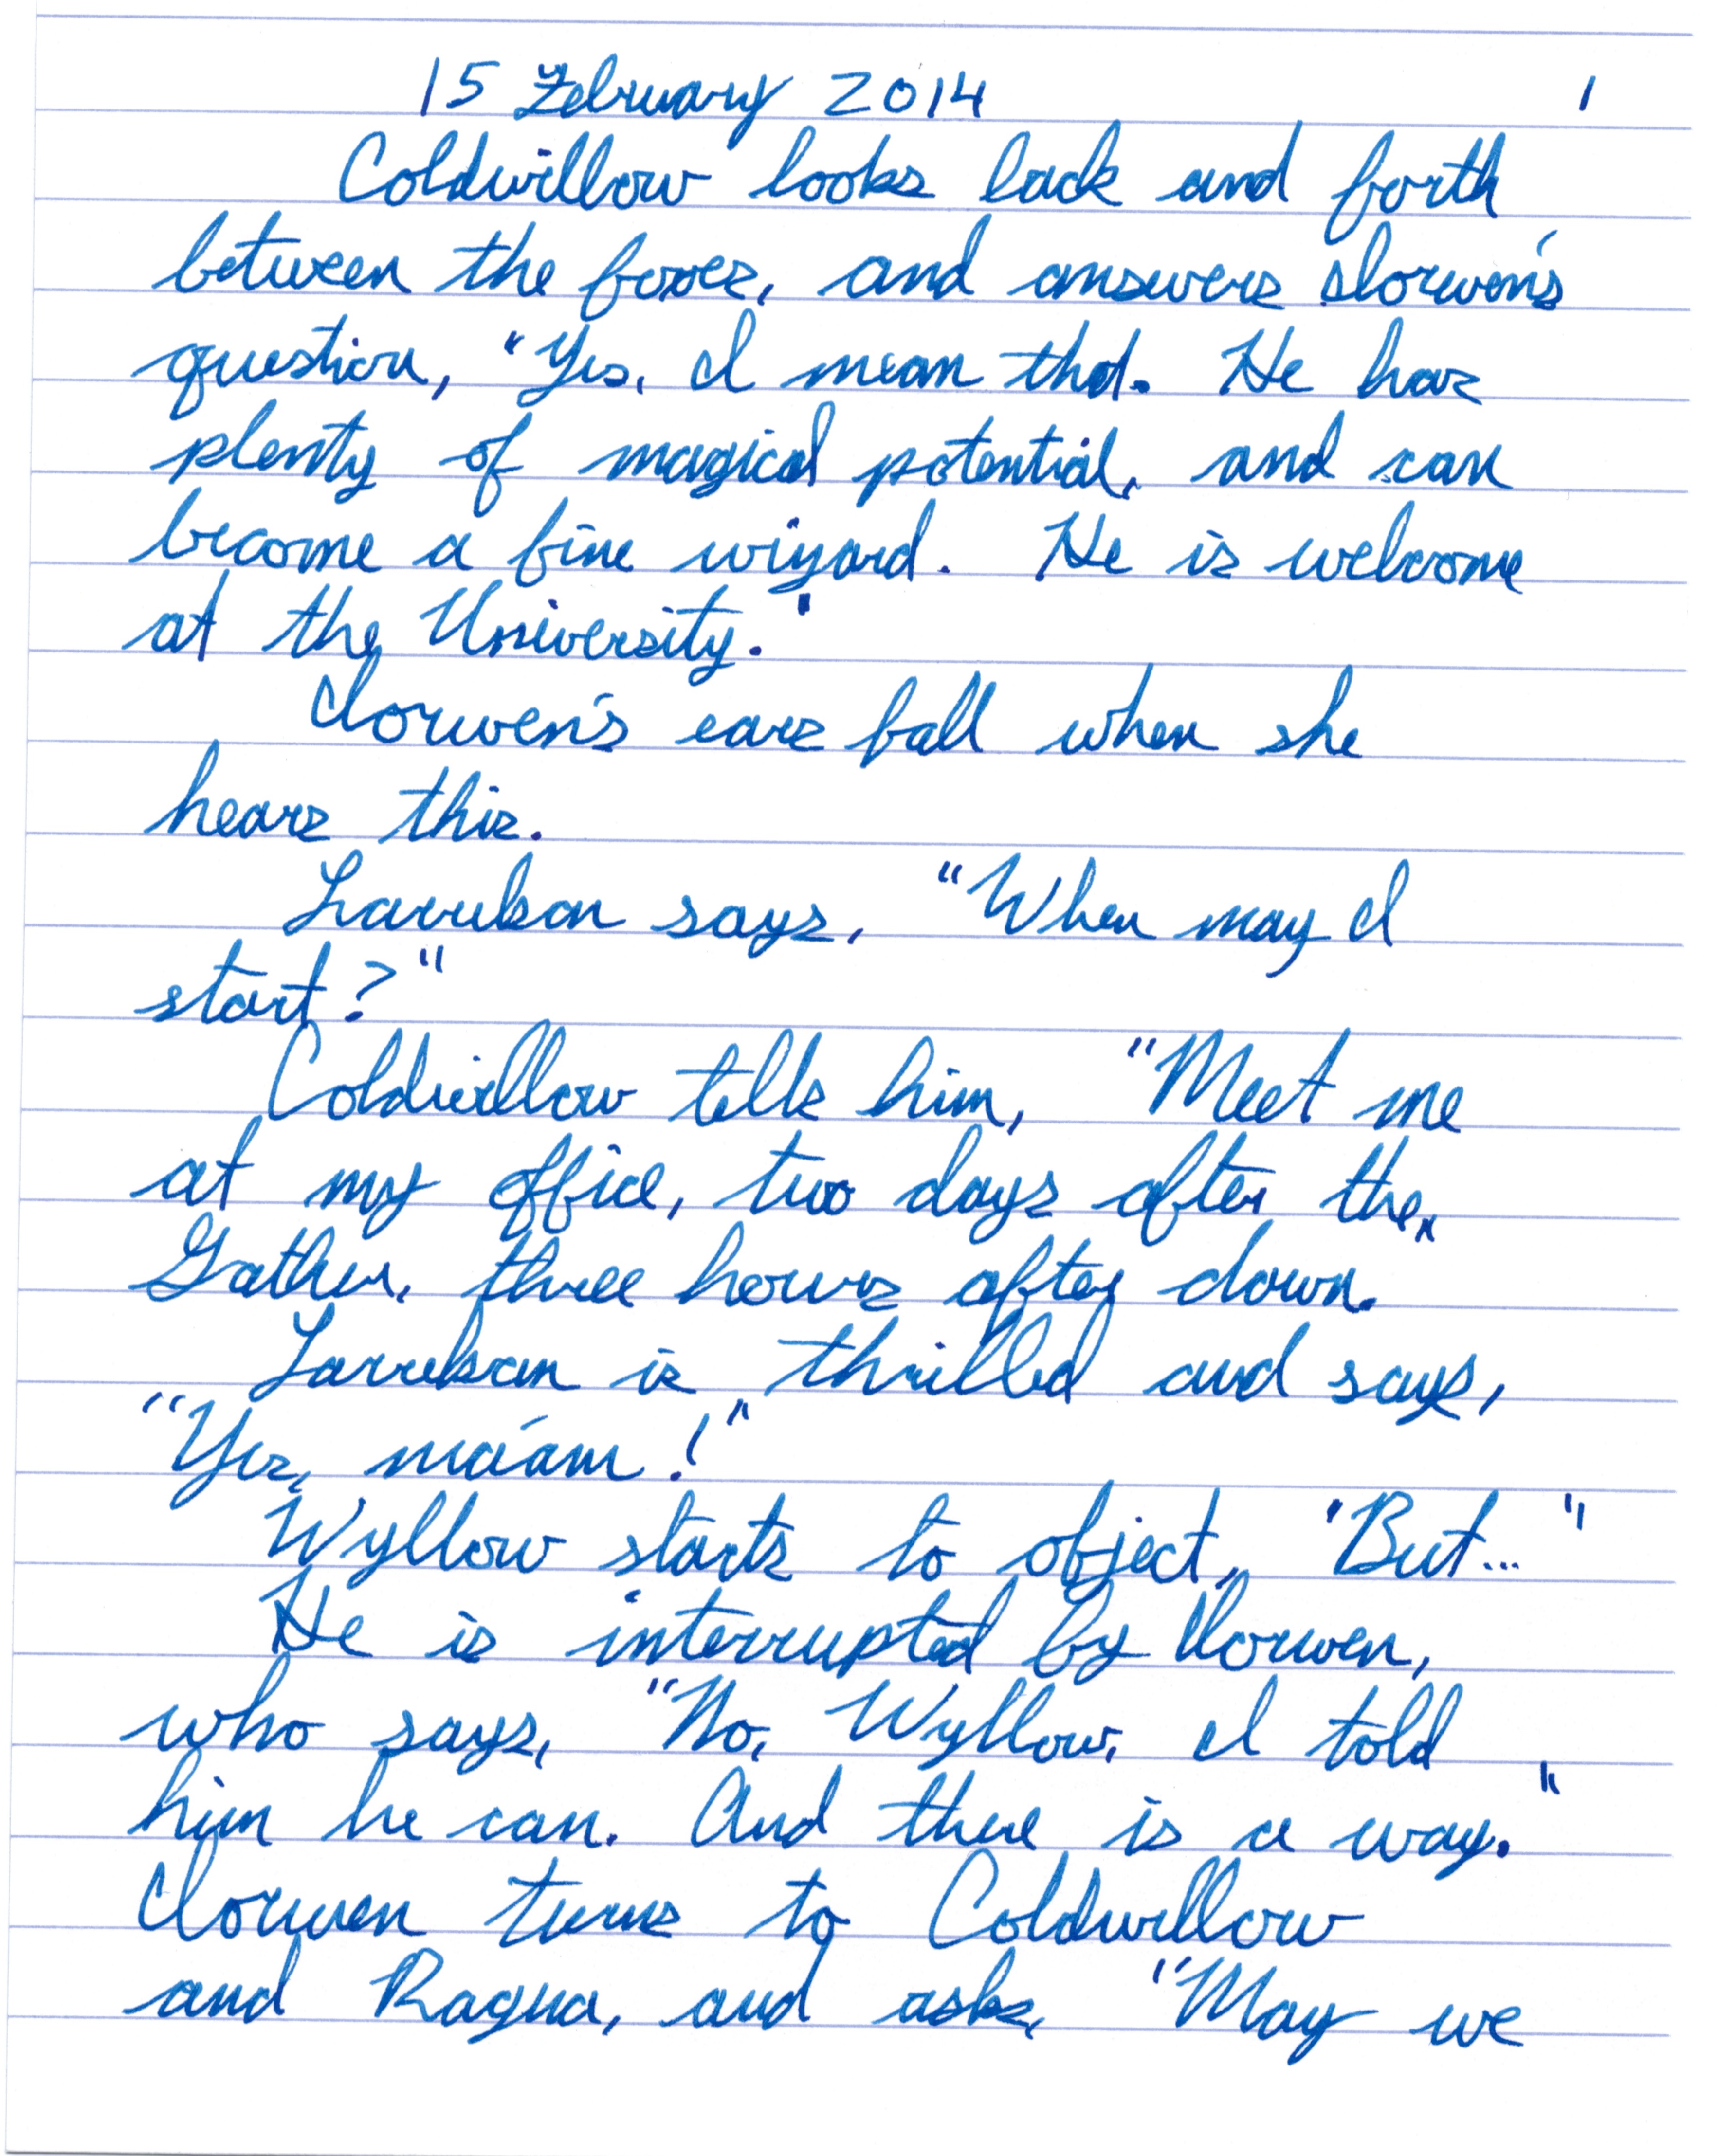 15 February 2014 1
Coldwillow looks back and forth
between the foxes, and answers Slorwen's
question, "Yes, I mean that. He has
plenty of magical potential, and can
become a fine wizard. He is welcome
at the University."
Clorwen's ears fall when she
hears this.
Larrekson says, "When may I
start?"
Coldwillow tells him, "Meet me
at my office, two days after the
Gather, three hours after dawn.
Larrekson is thrilled and says,
"Yes, ma'am!"
Wyllow starts to object, "But..."
He is interrupted by Clorwen,
who says, "No, Wyllow, I told
him he can. And there is a way."
Clorwen turns to Coldwillow
and Ragna, and asks, "May we